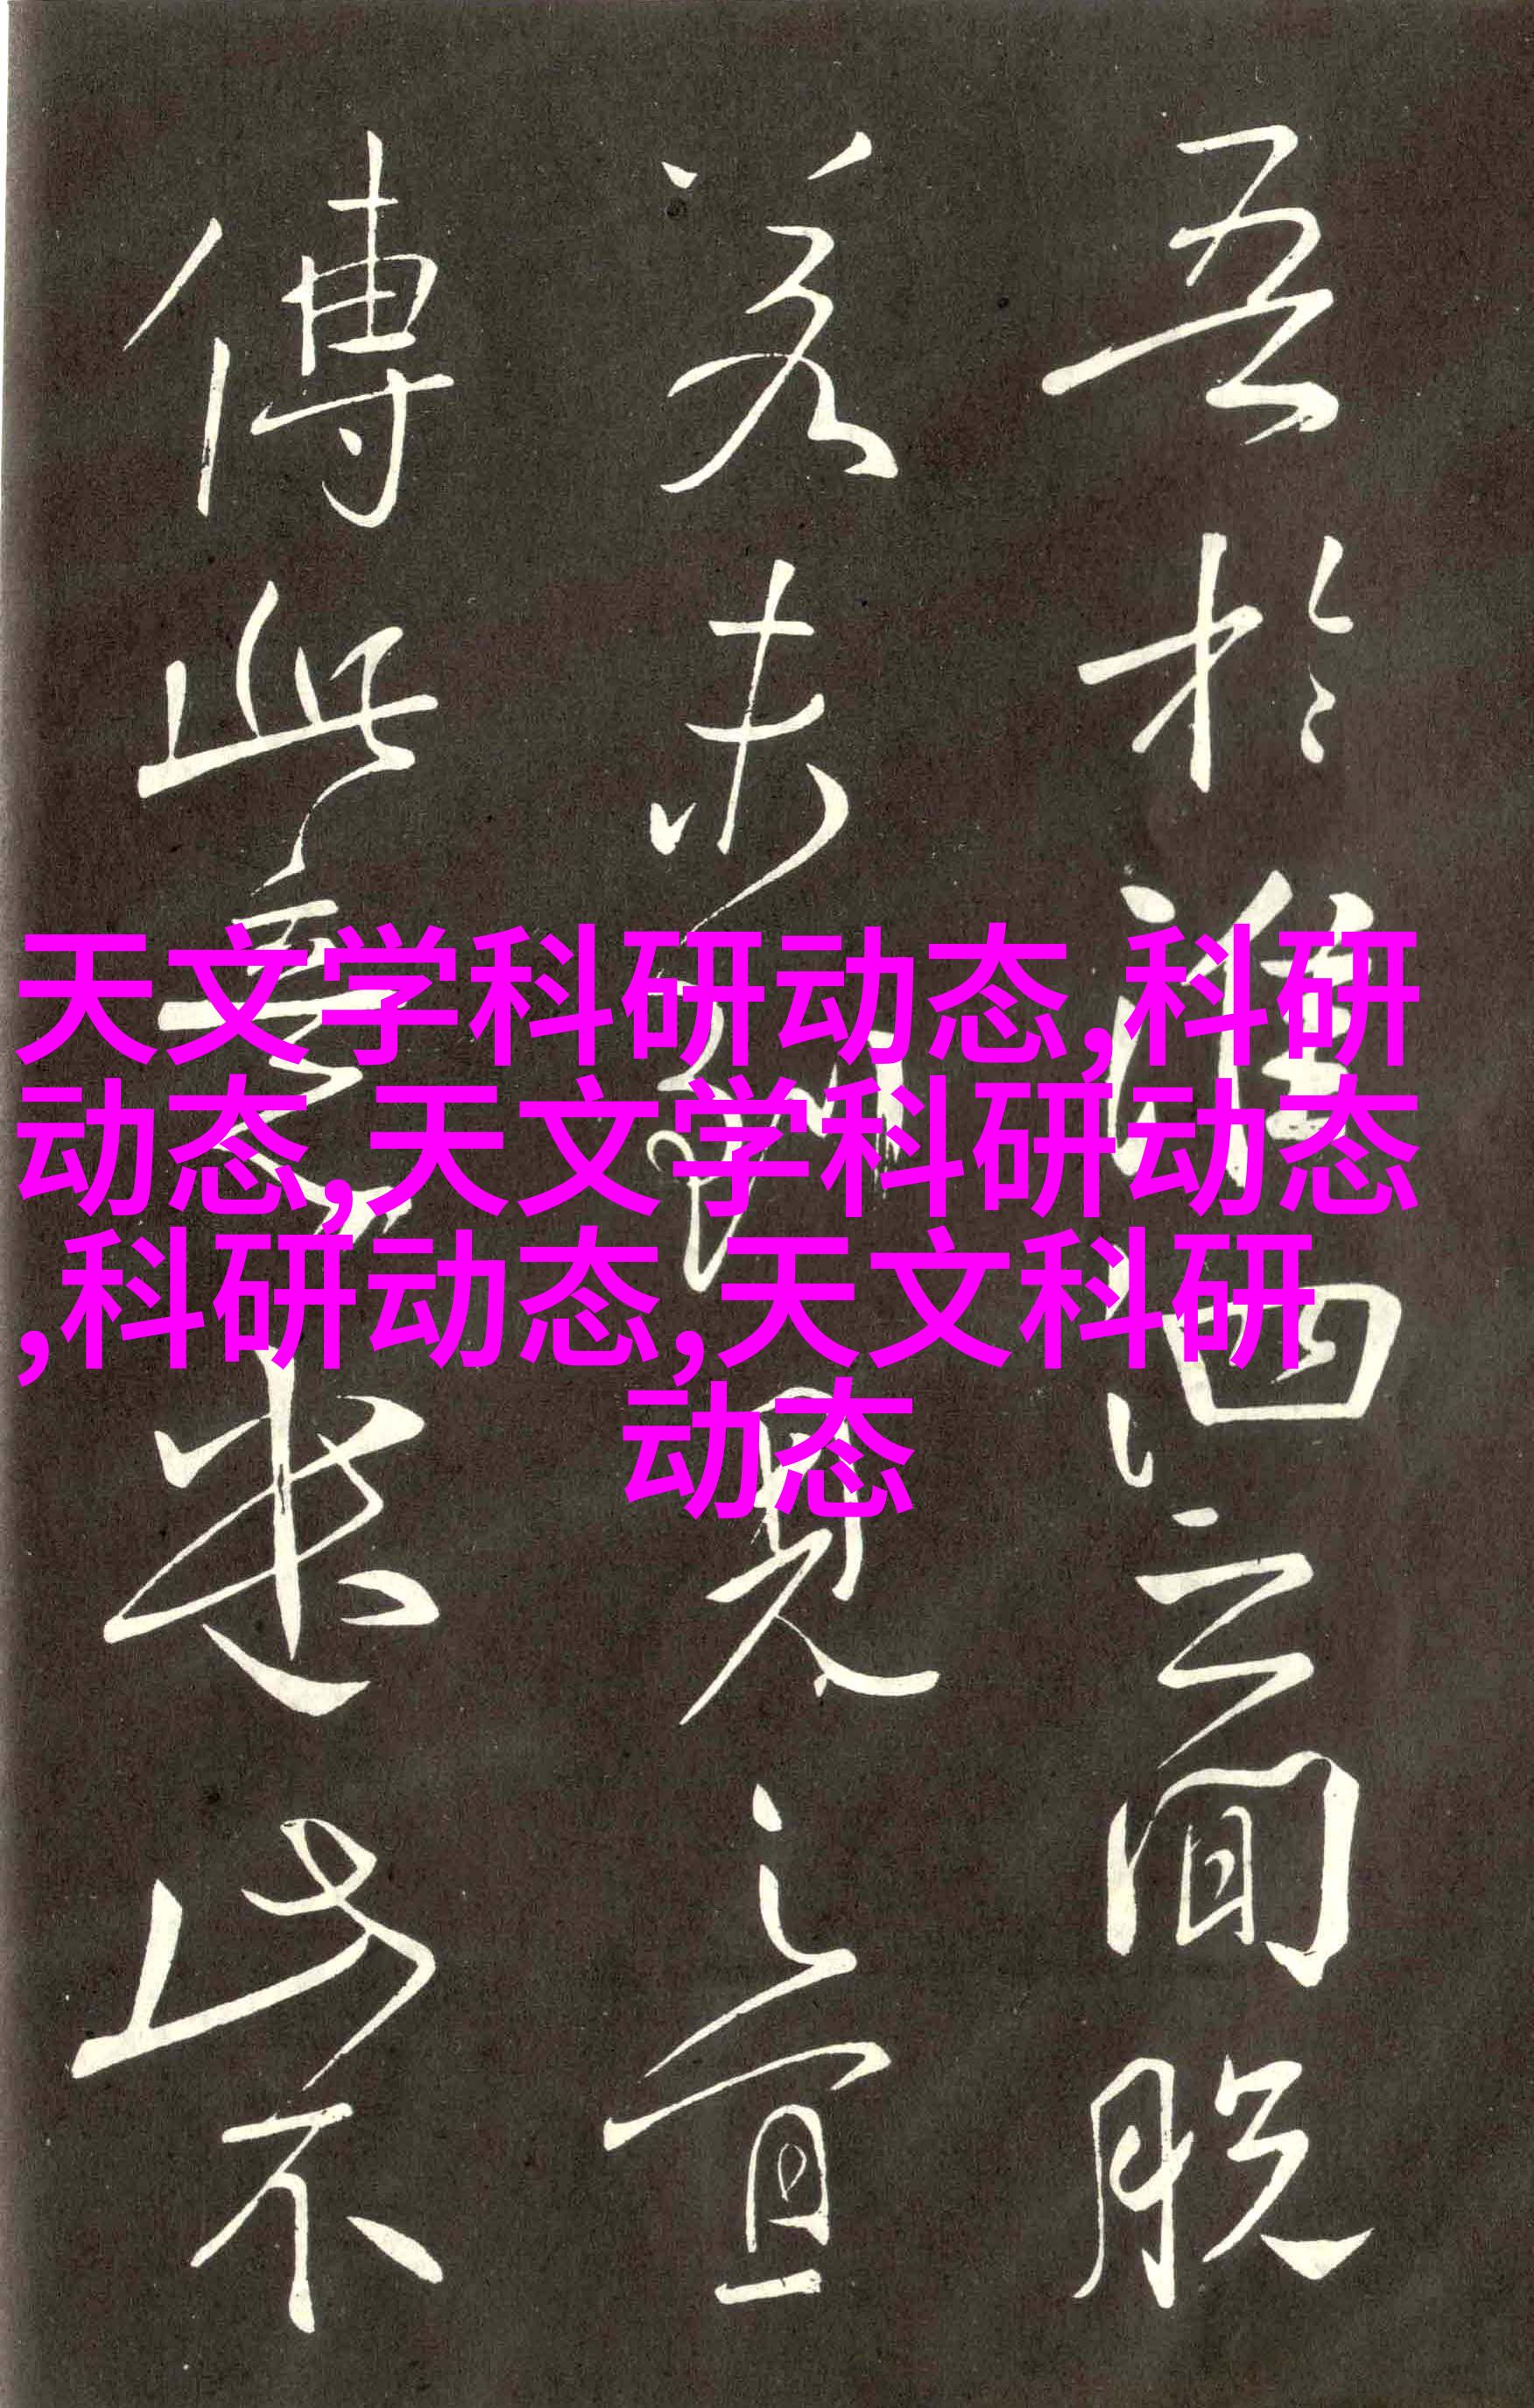 吾於淮泗之間脫
若未 見之宜
傳此意 此不
天文学科研动态,科研
动态,天文学科研动态
,科研动态,天文科研
动态